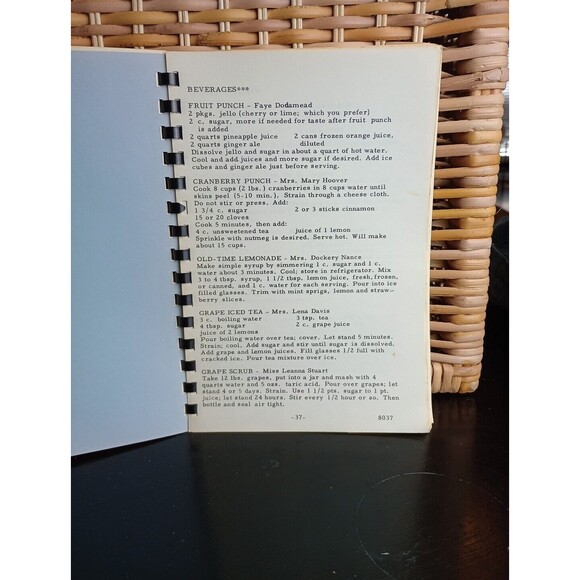 BEVERAGES***
FRUIT PUNCH - Faye Dodamead
2 pkgs. jello (cherry or lime; which you prefer)
2 c. sugar, more if needed for taste after fruit punch
is added
2 quarts pineapple juice 2 cans frozen orange juice,
2 quarts ginger ale diluted
Dissolve jello and sugar in about a quart of hot water.
Cool and add juices and more sugar if desired. Add ice
cubes and ginger ale just before serving.
CRANBERRY PUNCH - Mrs. Mary Hoover
Cook 8 cups (2 lbs.) cranberries in 8 cups water until
skins peel (5-10 min.). Strain through a cheese cloth.
Do not stir or press. Add:
1 3/4 c. sugar 2 or 3 sticks cinnamon
15 or 20 cloves
Cook 5 minutes, then add:
4 c. unsweetened tea juice of 1 lemon
Sprinkle with nutmeg is desired. Serve hot. Will make
about 15 cups.
OLD-TIME LEMONADE - Mrs. Dockery Nance
Make simple syrup by simmering 1 c. sugar and 1 c.
water about 3 minutes. Cool; store in refrigerator. Mix
3 to 4 tbsp. syrup, 1 1/2 tbsp. lemon juice, fresh, frozen,
or canned, and 1 c. water for each serving. Pour into ice
filled glasses. Trim with mint sprigs, lemon and straw-
berry slices.
GRAPE ICED TEA - Mrs. Lena Davis
3 c. boiling water 3 tsp. tea
4 tbsp. sugar 2 c. grape juice
juice of 2 lemons
Pour boiling water over tea; cover. Let stand 5 minutes.
Strain; cool. Add sugar and stir until sugar is dissolved.
Add grape and lemon juices. Fill glasses 1/2 full with
cracked ice. Pour tea mixture over ice.
GRAPE SCRUB - Miss Leanna Stuart
Take 12 lbs. grapes, put into a jar and mash with 4
quarts water and 5 ozs. taric acid. Pour over grapes; let
stand 4 or 5 days. Strain. Use 1 1/2 pts. sugar to 1 pt.
juice; let stand 24 hours. Stir every 1/2 hour or so. Then
bottle and seal air tight.
-37- 8037